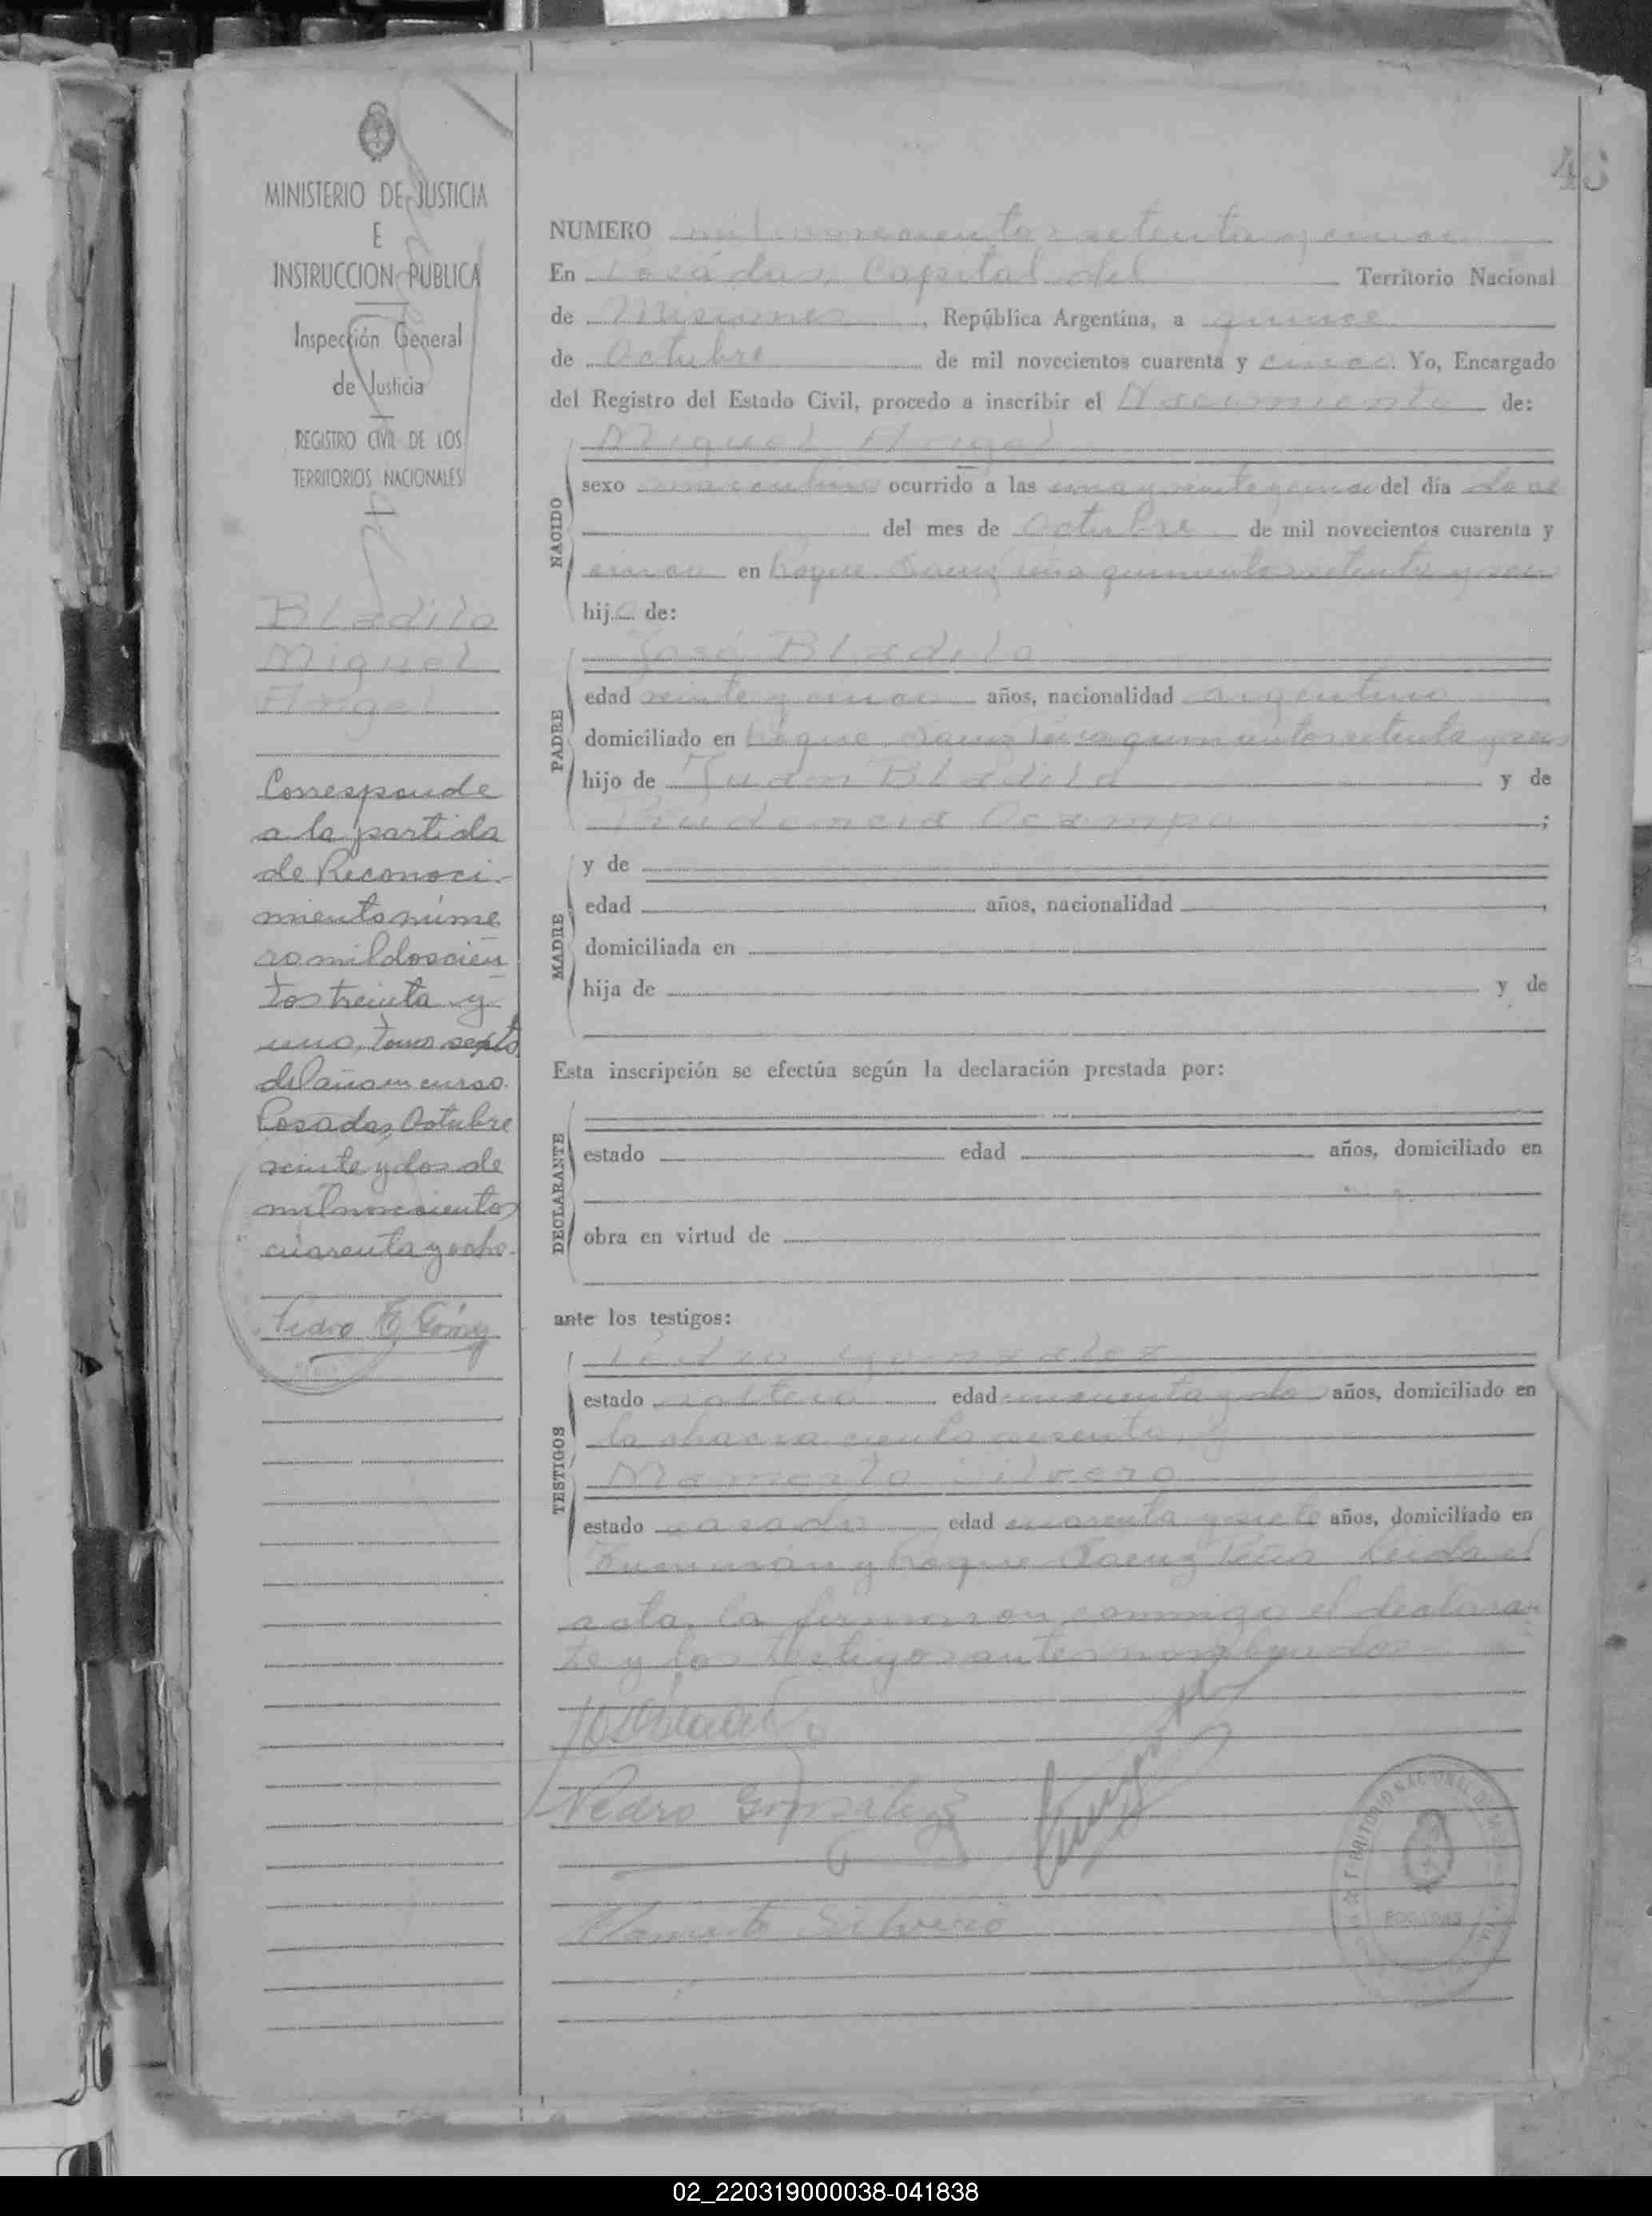 43
MINISTERIO DE JUSTICIA
E
INSTRUCCION PUBLICA
Inspección General
de Justicia
REGISTRO CIVIL DE LOS
TERRITORIOS NACIONALES
Bladilo
Miguel
Angel
Corresponde
a la partida
de Reconoci-
miento núme
ro mil doscien
tos treinta y
uno, tomo septo
del año en curso.
Posadas, Octubre
veinte y dos de
mil novecientos
cuarenta y ocho.
Pedro E. Gómez
NUMERO mil novecientos setenta y cinco
En Posadas, Capital del Territorio Nacional
de Misiones, República Argentina, a quince
de Octubre de mil novecientos cuarenta y cinco. Yo, Encargado
del Registro del Estado Civil, procedo a inscribir el Nacimiento de:
NACIDO
Miguel Angel
sexo masculino ocurrido a las una y veinte y cinco del día doce
del mes de Octubre de mil novecientos cuarenta y
cinco en Roque Saenz Peña quinientos setenta y seis
hijo de:
PADRE
José Bladilo
edad veinte y cinco años, nacionalidad argentino
domiciliado en Roque Saenz Peña quinientos setenta y seis
hijo de Juan Bladilo y de
Prudencia Ocampo;
MADRE
y de
edad años, nacionalidad
domiciliada en
hija de y de
Esta inscripción se efectúa según la declaración prestada por:
DECLARANTE
estado edad años, domiciliado en
obra en virtud de
ante los testigos:
TESTIGOS
Pedro Gonzalez
estado soltero edad cincuenta y dos años, domiciliado en
la chacra ciento sesenta, y
Mamerto Silvero
estado casado edad cuarenta y siete años, domiciliado en
Tucumán y Roque Saenz Peña. Leida el
acta, la firmaron conmigo el declaran
te y los testigos antes nombrados
Pedro Gonzalez
Mamerto Silvero
POSADAS
02_220319000038-041838